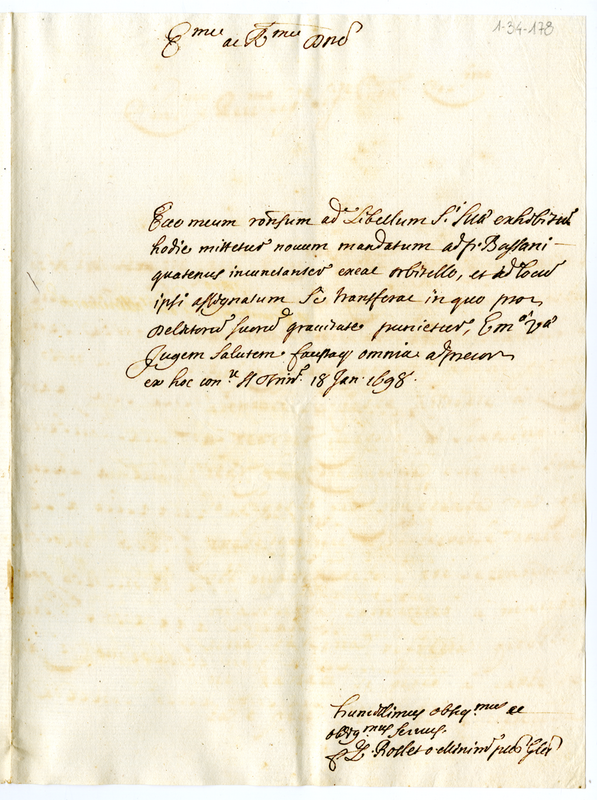 1-34-178
E.mce ac R.mce Dne
Ecce meum ronsum ad Libellum S.r Suæ exhibitum
hodie mittetur novum mandatum ad p. Bassani
quatenus incunctanter exeat orbitello, et ad locum
ipsi assignatum se transferat in quo pro
Delictorum suorum gravitate punietur, Em.æ V.æ
Jugem Salutem faustaq omnia adprecor
ex hoc con.u SS Trin. 18 Jan. 1698.
humillimus obseq.mus ac
oblig.mus servus.
f.